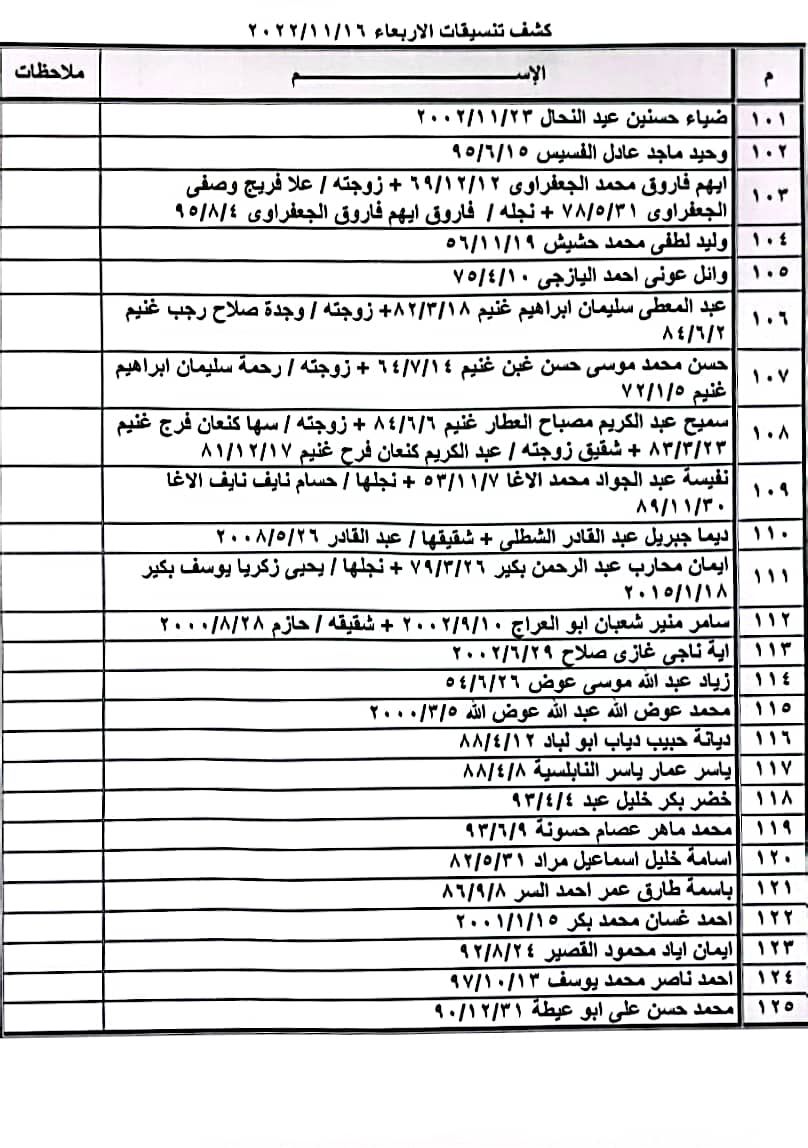 كشف تنسيقات الاربعاء ٢٠٢٢/١١/١٦
م الإســـم ملاحظات
١٠١ ضياء حسنين عيد النحال ٢٠٠٢/١١/٢٣
١٠٢ وحيد ماجد عادل القسيس ٩٥/٦/١٥
١٠٣ ايهم فاروق محمد الجعفراوى ٦٩/١٢/١٢ + زوجته / علا فريج وصفى
الجعفراوى ٧٨/٥/٣١ + نجله / فاروق ايهم فاروق الجعفراوى ٩٥/٨/٤
١٠٤ وليد لطفى محمد حشيش ٥٦/١١/١٩
١٠٥ وائل عونى احمد اليازجى ٧٥/٤/١٠
١٠٦ عبد المعطى سليمان ابراهيم غنيم ٨٢/٣/١٨+ زوجته / وجدة صلاح رجب غنيم
٨٤/٦/٢
١٠٧ حسن محمد موسى حسن غبن غنيم ٦٤/٧/١٤ + زوجته / رحمة سليمان ابراهيم
غنيم ٧٢/١/٥
١٠٨ سميح عبد الكريم مصباح العطار غنيم ٨٤/٦/٦ + زوجته / سها كنعان فرج غنيم
٨٣/٣/٢٣ + شقيق زوجته / عبد الكريم كنعان فرح غنيم ٨١/١٢/١٧
١٠٩ نفيسة عبد الجواد محمد الاغا ٥٣/١١/٧ + نجلها / حسام نايف نايف الاغا
٨٩/١١/٣٠
١١٠ ديما جبريل عبد القادر الشطلى + شقيقها / عبد القادر ٢٠٠٨/٥/٢٦
١١١ ايمان محارب عبد الرحمن بكير ٧٩/٣/٢٦ + نجلها / يحيى زكريا يوسف بكير
٢٠١٥/١/١٨
١١٢ سامر منير شعبان ابو العراج ٢٠٠٢/٩/١٠ + شقيقه / حازم ٢٠٠٠/٨/٢٨
١١٣ اية ناجى غازى صلاح ٢٠٠٢/٦/٢٩
١١٤ زياد عبد الله موسى عوض ٥٤/٦/٢٦
١١٥ محمد عوض الله عبد الله عوض الله ٢٠٠٠/٣/٥
١١٦ ديانة حبيب دياب ابو لباد ٨٨/٤/١٢
١١٧ ياسر عمار ياسر النابلسية ٨٨/٤/٨
١١٨ خضر بكر خليل عبد ٩٣/٤/٤
١١٩ محمد ماهر عصام حسونة ٩٣/٦/٩
١٢٠ اسامة خليل اسماعيل مراد ٨٢/٥/٣١
١٢١ باسمة طارق عمر احمد السر ٨٦/٩/٨
١٢٢ احمد غسان محمد بكر ٢٠٠١/١/١٥
١٢٣ ايمان اياد محمود القصير ٩٢/٨/٢٤
١٢٤ احمد ناصر محمد يوسف ٩٧/١٠/١٣
١٢٥ محمد حسن على ابو عيطة ٩٠/١٢/٣١